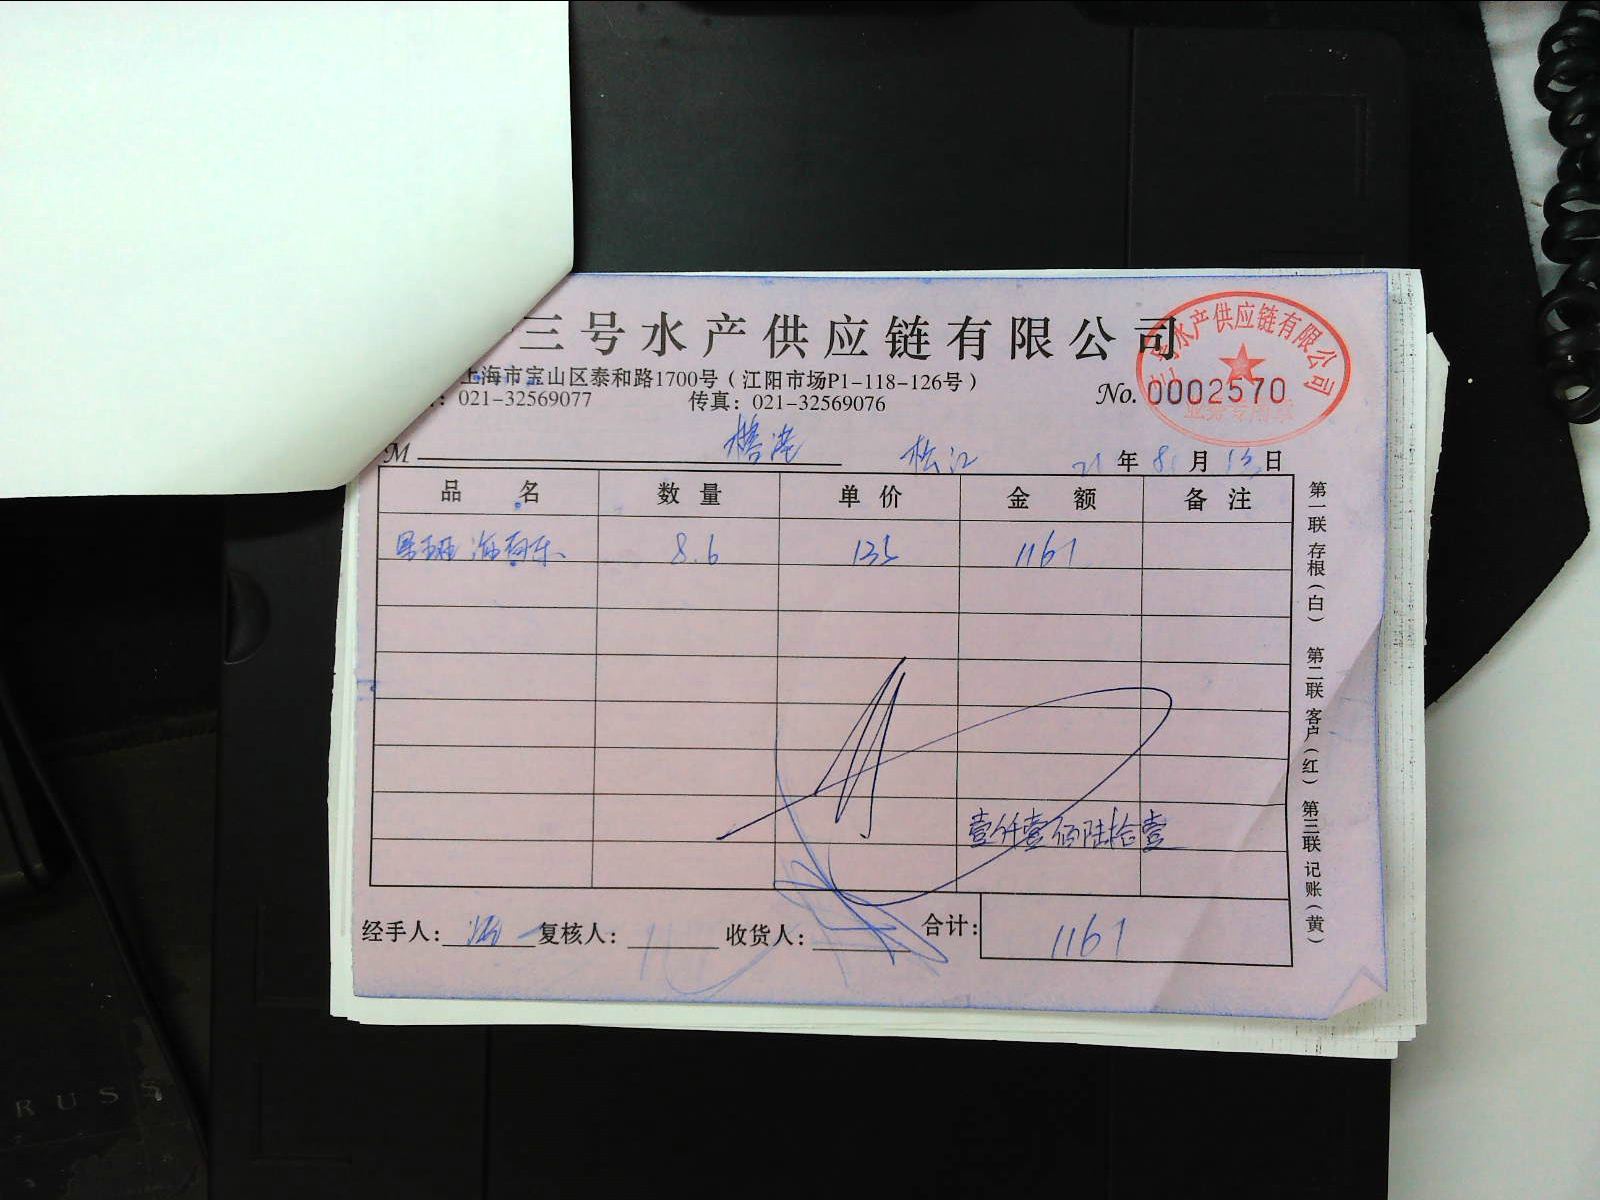 三号水产供应链有限公司
三号水产供应链有限公司
业务专用章
上海市宝山区泰和路1700号（江阳市场P1-118-126号）
：021-32569077 传真：021-32569076
No. 0002570
M 松江 21年8月13日
品名 数量 单价 金额 备注
8.6 135 1161
壹仟壹佰陆拾壹
经手人： 复核人： 收货人： 合计： 1161
第一联 存根（白） 第二联 客户（红） 第三联 记账（黄）
RUSS